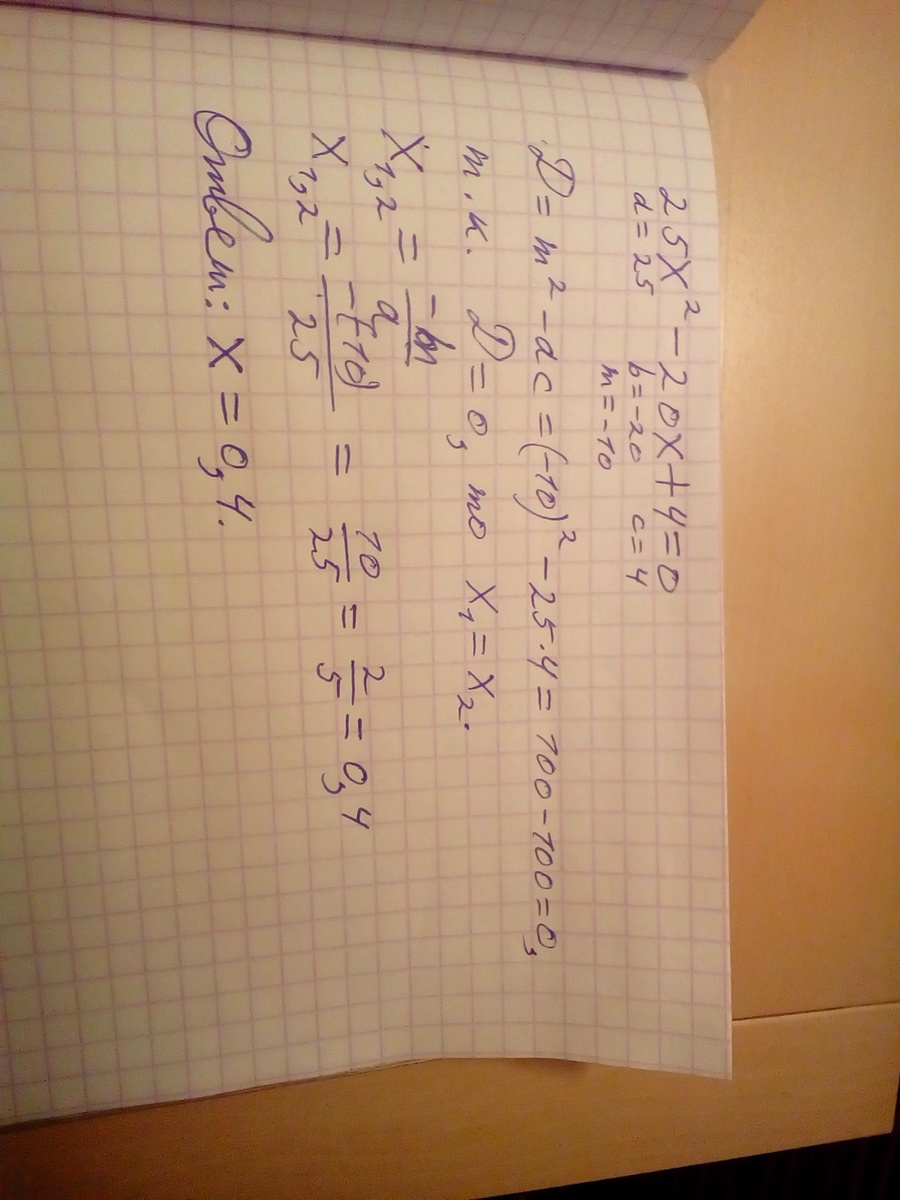 25x² - 20x + 4 = 0
a = 25 b = -20 c = 4
m = -10
D = m² - ac = (-10)² - 25·4 = 100 - 100 = 0,
т.к. D = 0, то x₁ = x₂.
x₁,₂ = -m/a
x₁,₂ = -(-10)/25 = 10/25 = 2/5 = 0,4
Ответ: x = 0,4.